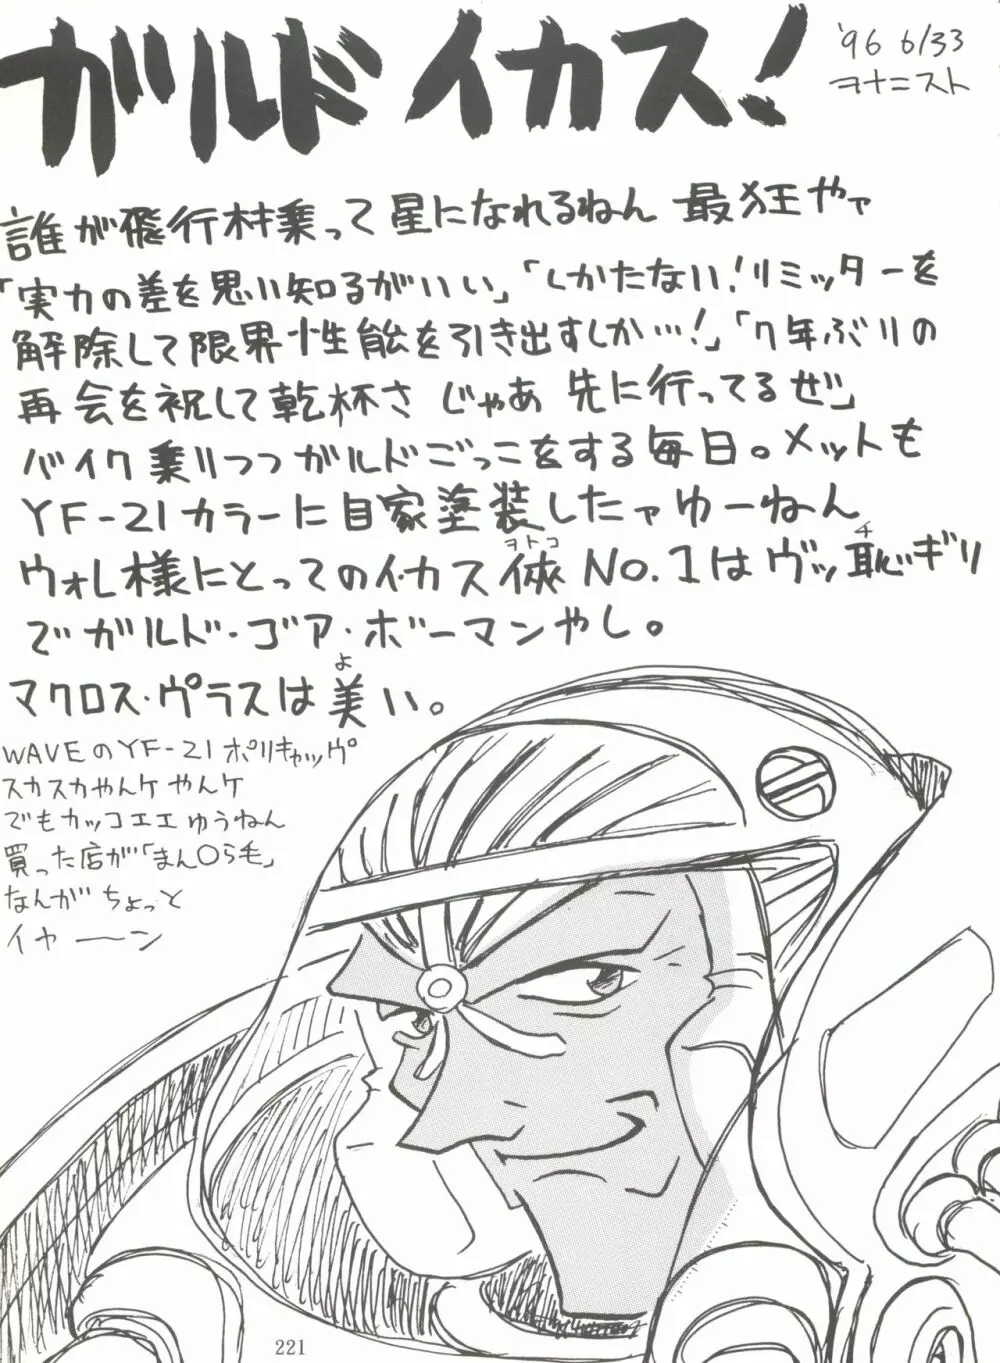 ガルド イカス!
'96 6/33
ヲナニスト
誰が飛行村乗って星になれるねん 最狂やァ
「実力の差を思い知るがいい」「しかたない!リミッターを
解除して限界性能を引き出すしか…!」「7年ぶりの
再会を祝して乾杯さ じゃあ 先に行ってるぜ」
バイク乗りつつガルドごっこをする毎日。メットも
YF-21カラーに自家塗装したァゆーねん
ウォレ様にとってのイカス侠 NO.1はヴッ恥ギリ
ヲトコ
チ
でガルド・ゴア・ボーマンやし。
マクロス・プラスは美い。
よ
WAVEのYF-21 ポリキャップ
スカスカやんケ やんケ
でもカッコエエ ゆうねん
買った店が「まん〇らも」
なんが ちょっと
イヤーン
221